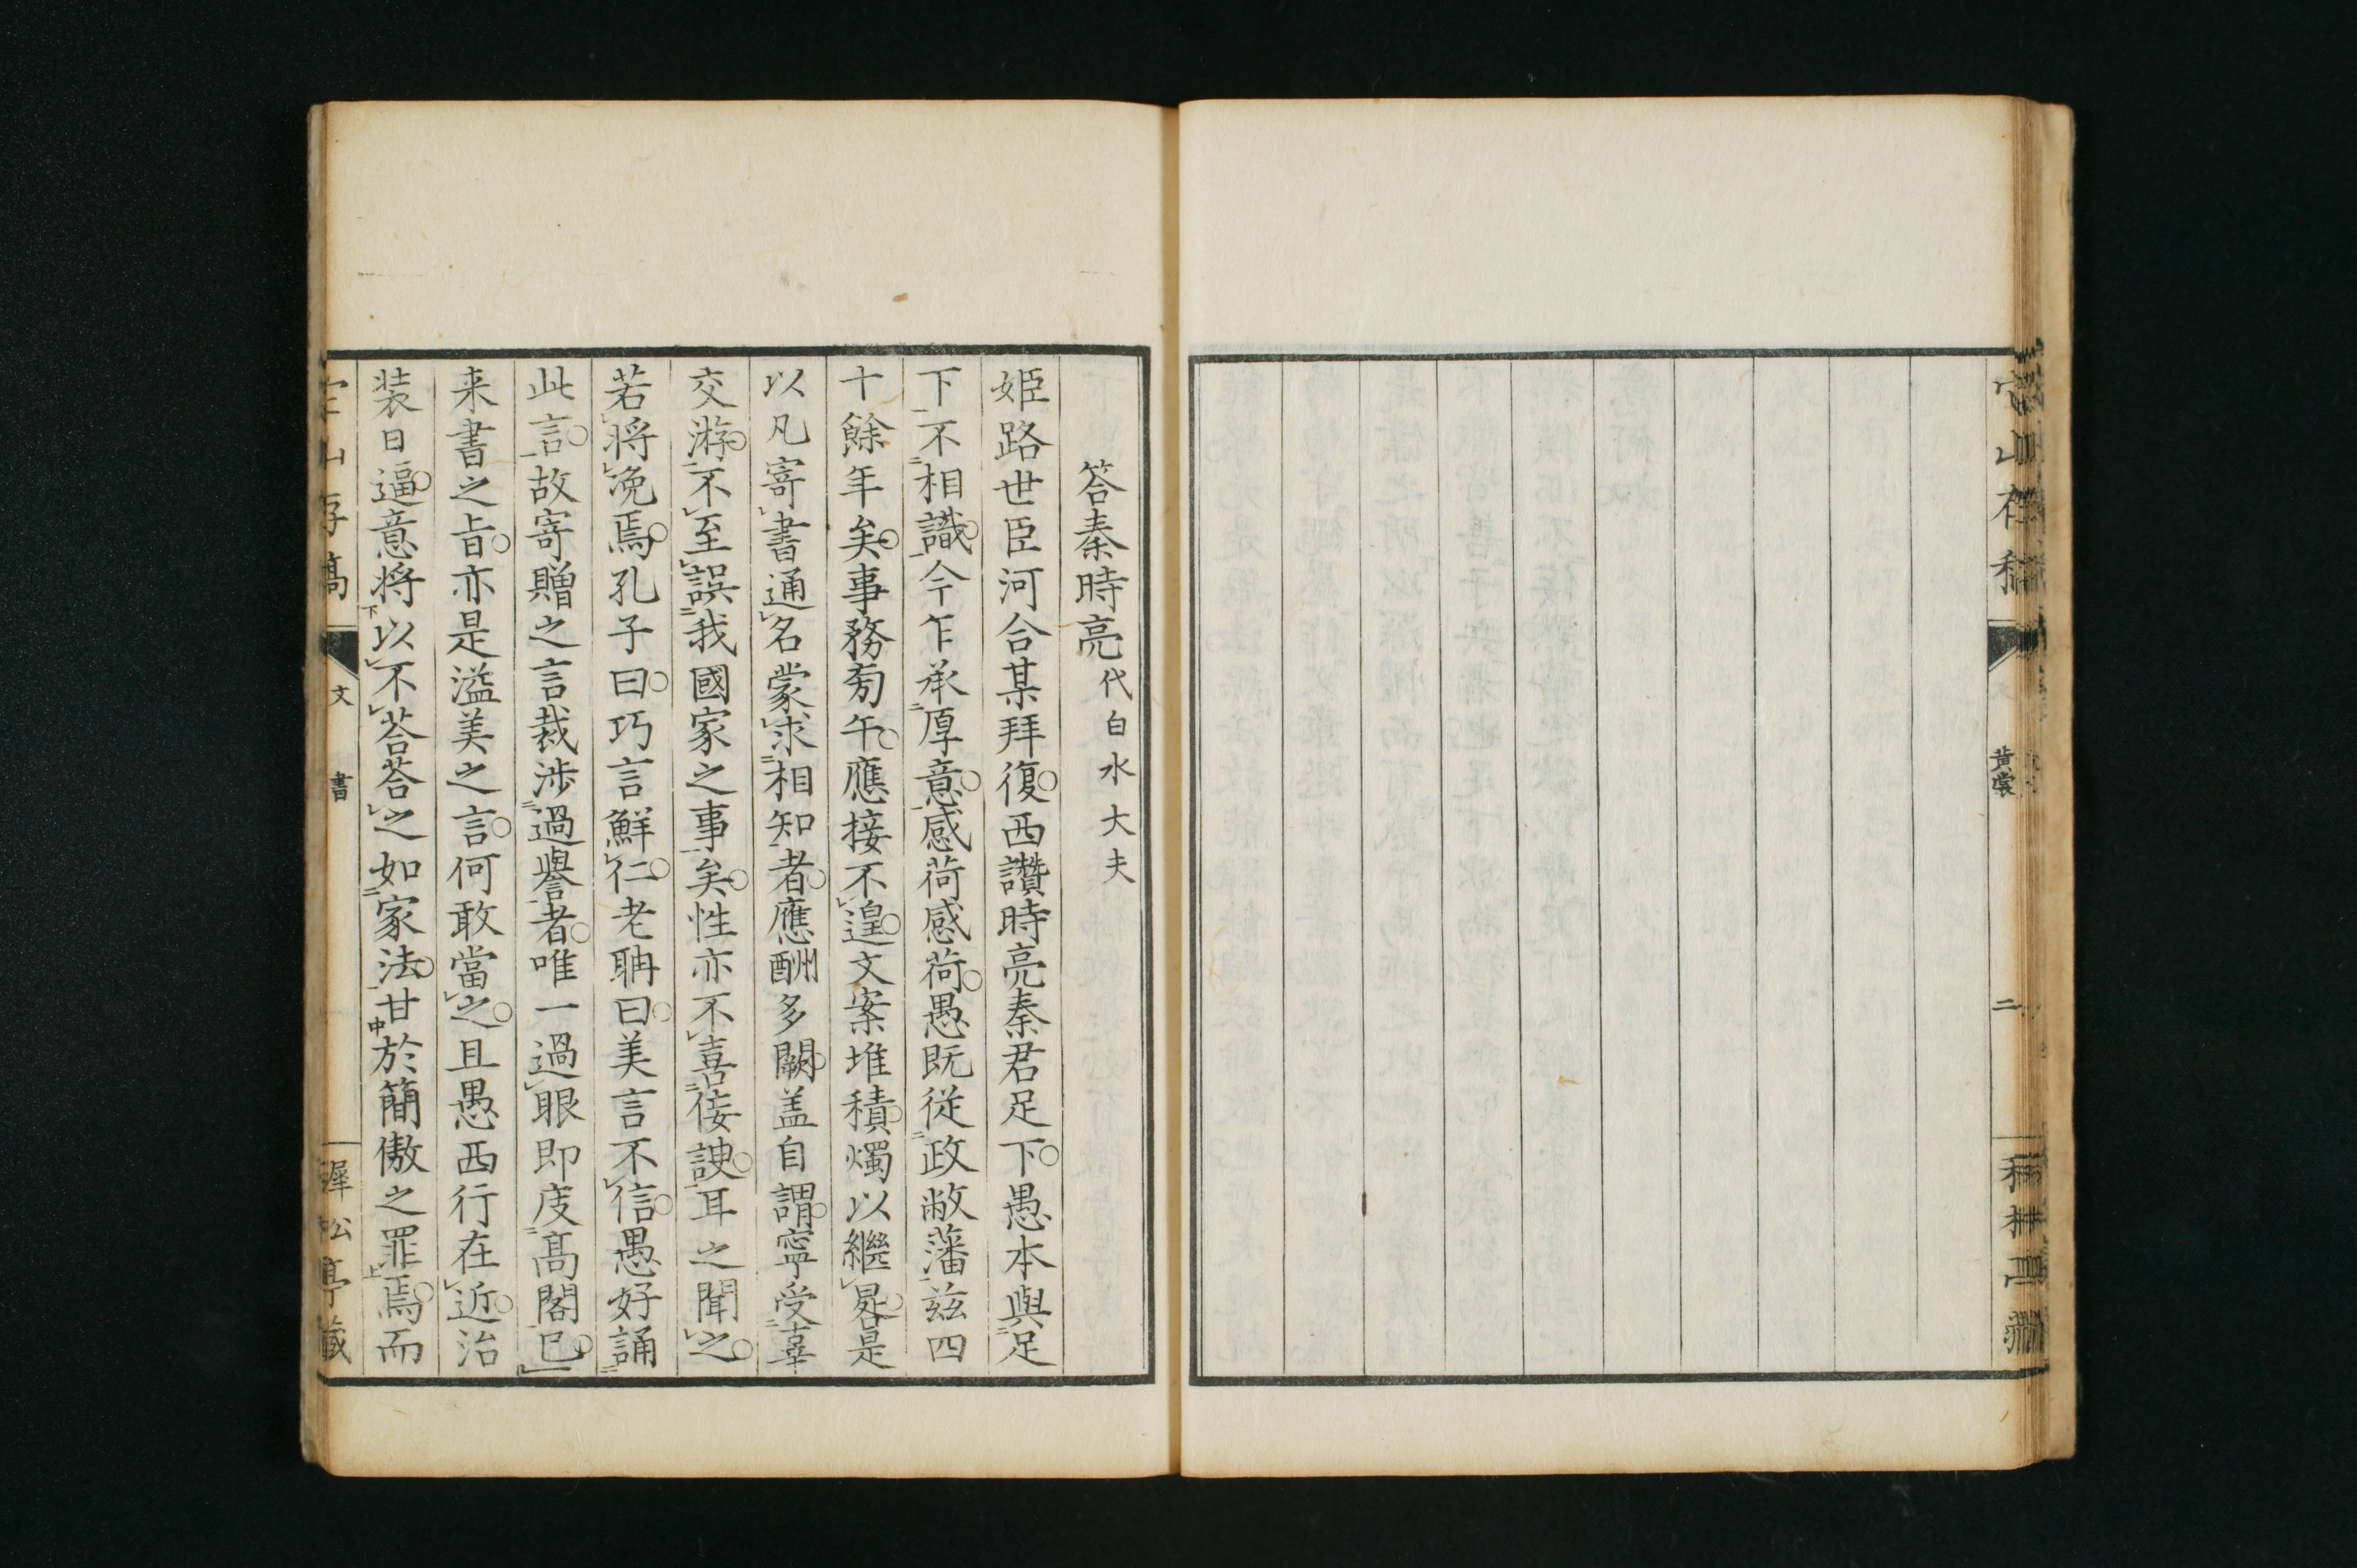 黄裳
二
答秦時亮代白水大夫
姫路世臣河合某拜復西讚時亮秦君足下愚本與足
下不相識今乍承厚意感荷感荷愚既從政敝藩茲四
十餘年矣事務旁午應接不遑文案堆積燭以繼晷是
以凡寄書通名蒙求相知者應酬多闕盖自謂寧受辜
交游不至誤我國家之事矣性亦不喜佞諛耳之聞之
若將浼焉孔子曰巧言鮮仁老聃曰美言不信愚好誦
此言故寄贈之言裁涉過譽者唯一過眼即庋髙閣已
来書之旨亦是溢美之言何敢當之且愚西行在近治
装日逼意將以不荅荅之如家法甘於簡傲之罪焉而
文
書